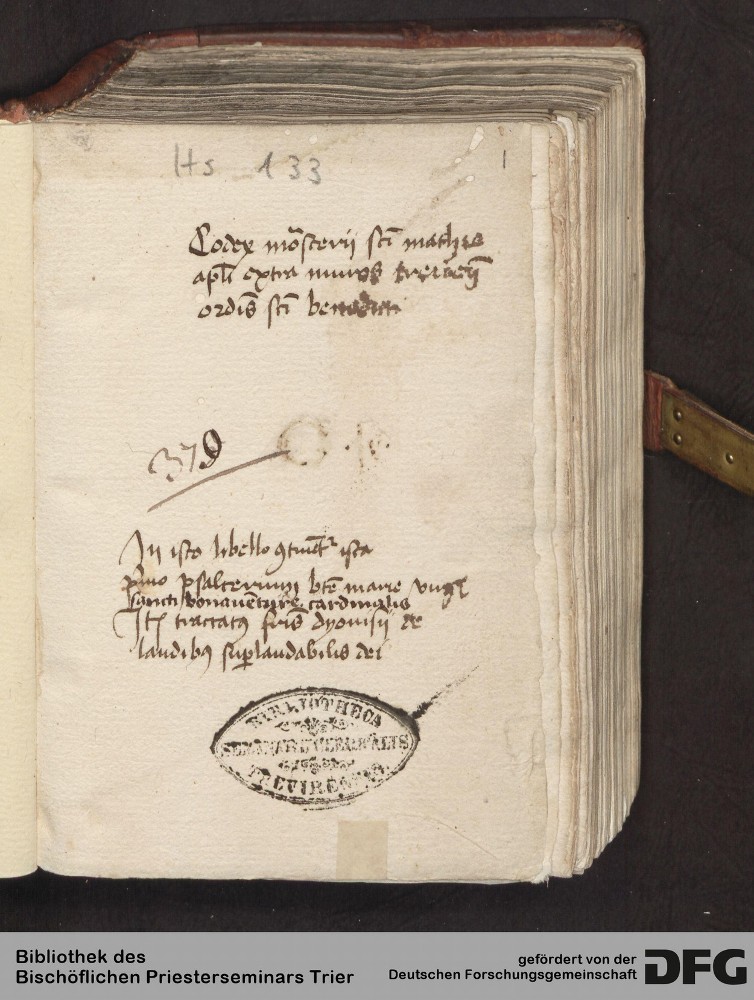 Hs 133
1
Codex mõsterij scī mathie
apłi extra muros treireñ
ordīs scī benedicti
379
In isto libello ꝯtinēt᷑ ista
pͥmo psalterium btē marie virgīs
sancti bonauēture cardinalis
Itē tractatꝰ frīs dyonisij de
laudibꝰ suꝑlaudabilis dei
BIBLIOTHECA
SEMINARII CLERICALIS
TREVIRENSIS
Bibliothek des
Bischöflichen Priesterseminars Trier
gefördert von der
Deutschen Forschungsgemeinschaft
DFG